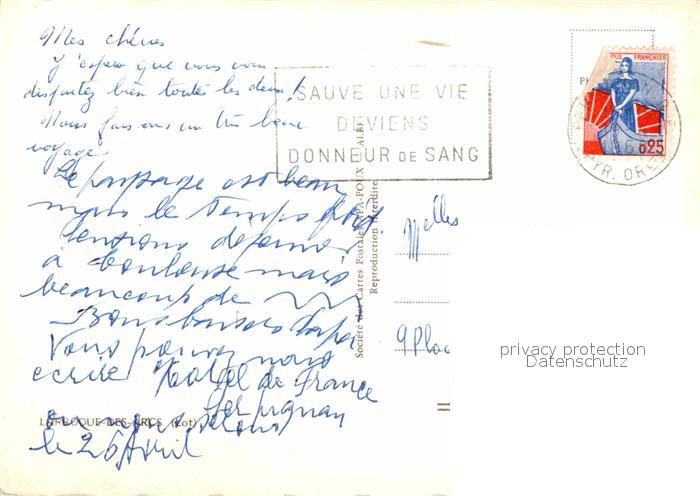 Mes chéries
J'espère que vous vous
disputez bien toutes les deux!
Nous faisons un très beau
voyage.
Le paysage est beau
mais le temps froid
déjeuner
à Toulouse mais
beaucoup de
Bons baisers Papa
Vous pouvez nous
écrire Hotel de France
Perpignan
le 26 Avril
LARROQUE-DES-ARCS (Lot)
SAUVE UNE VIE
DEVIENS
DONNEUR DE SANG
Société des Cartes Postales APA-POUX ALBI
Reproduction interdite
FRANÇAISE
0,25
PYR. ORLES
Melles
9 Plac
privacy protection
Datenschutz